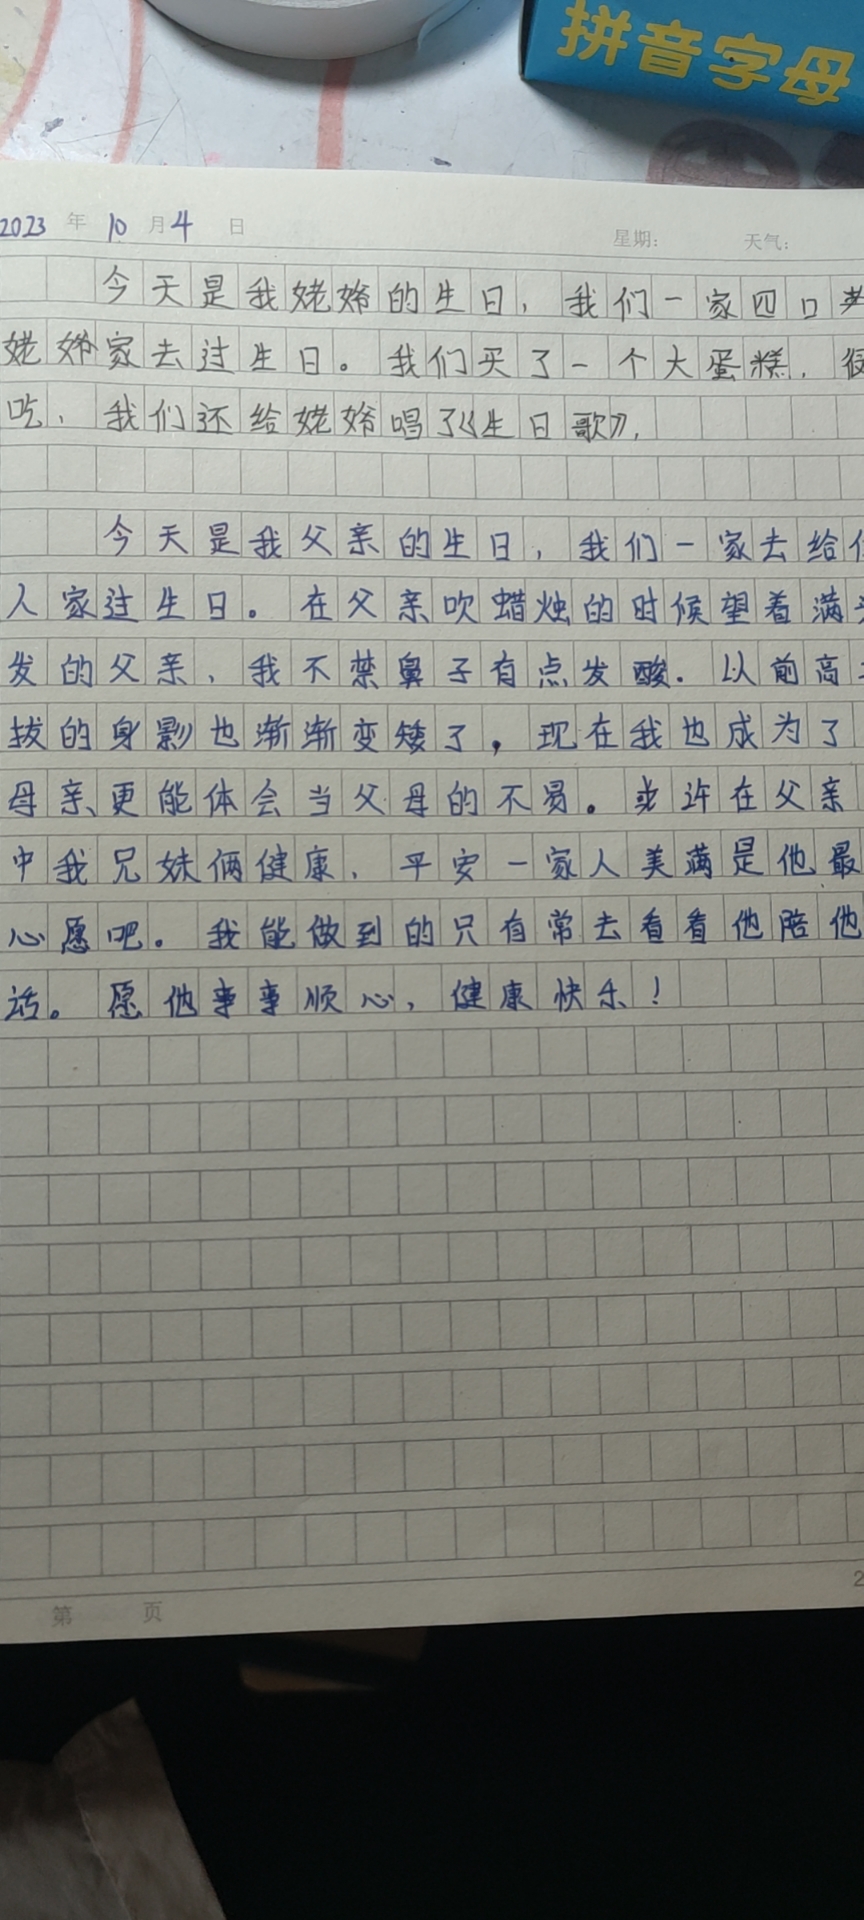 拼音字母
2023 年 10 月 4 日 星期: 天气:
今天是我姥爷的生日，我们一家四口
姥爷家去过生日。我们买了一个大蛋糕，
吃，我们还给姥爷唱了《生日歌》，
今天是我父亲的生日，我们一家去给
人家过生日。在父亲吹蜡烛的时候望着满
发的父亲，我不禁鼻子有点发酸．以前高
拔的身影也渐渐变矮了，现在我也成为了
母亲、更能体会当父母的不易。或许在父亲
中我兄妹俩健康、平安一家人美满是他最
心愿吧。我能做到的只有常去看看他陪他
话。愿他事事顺心，健康快乐！
第 页